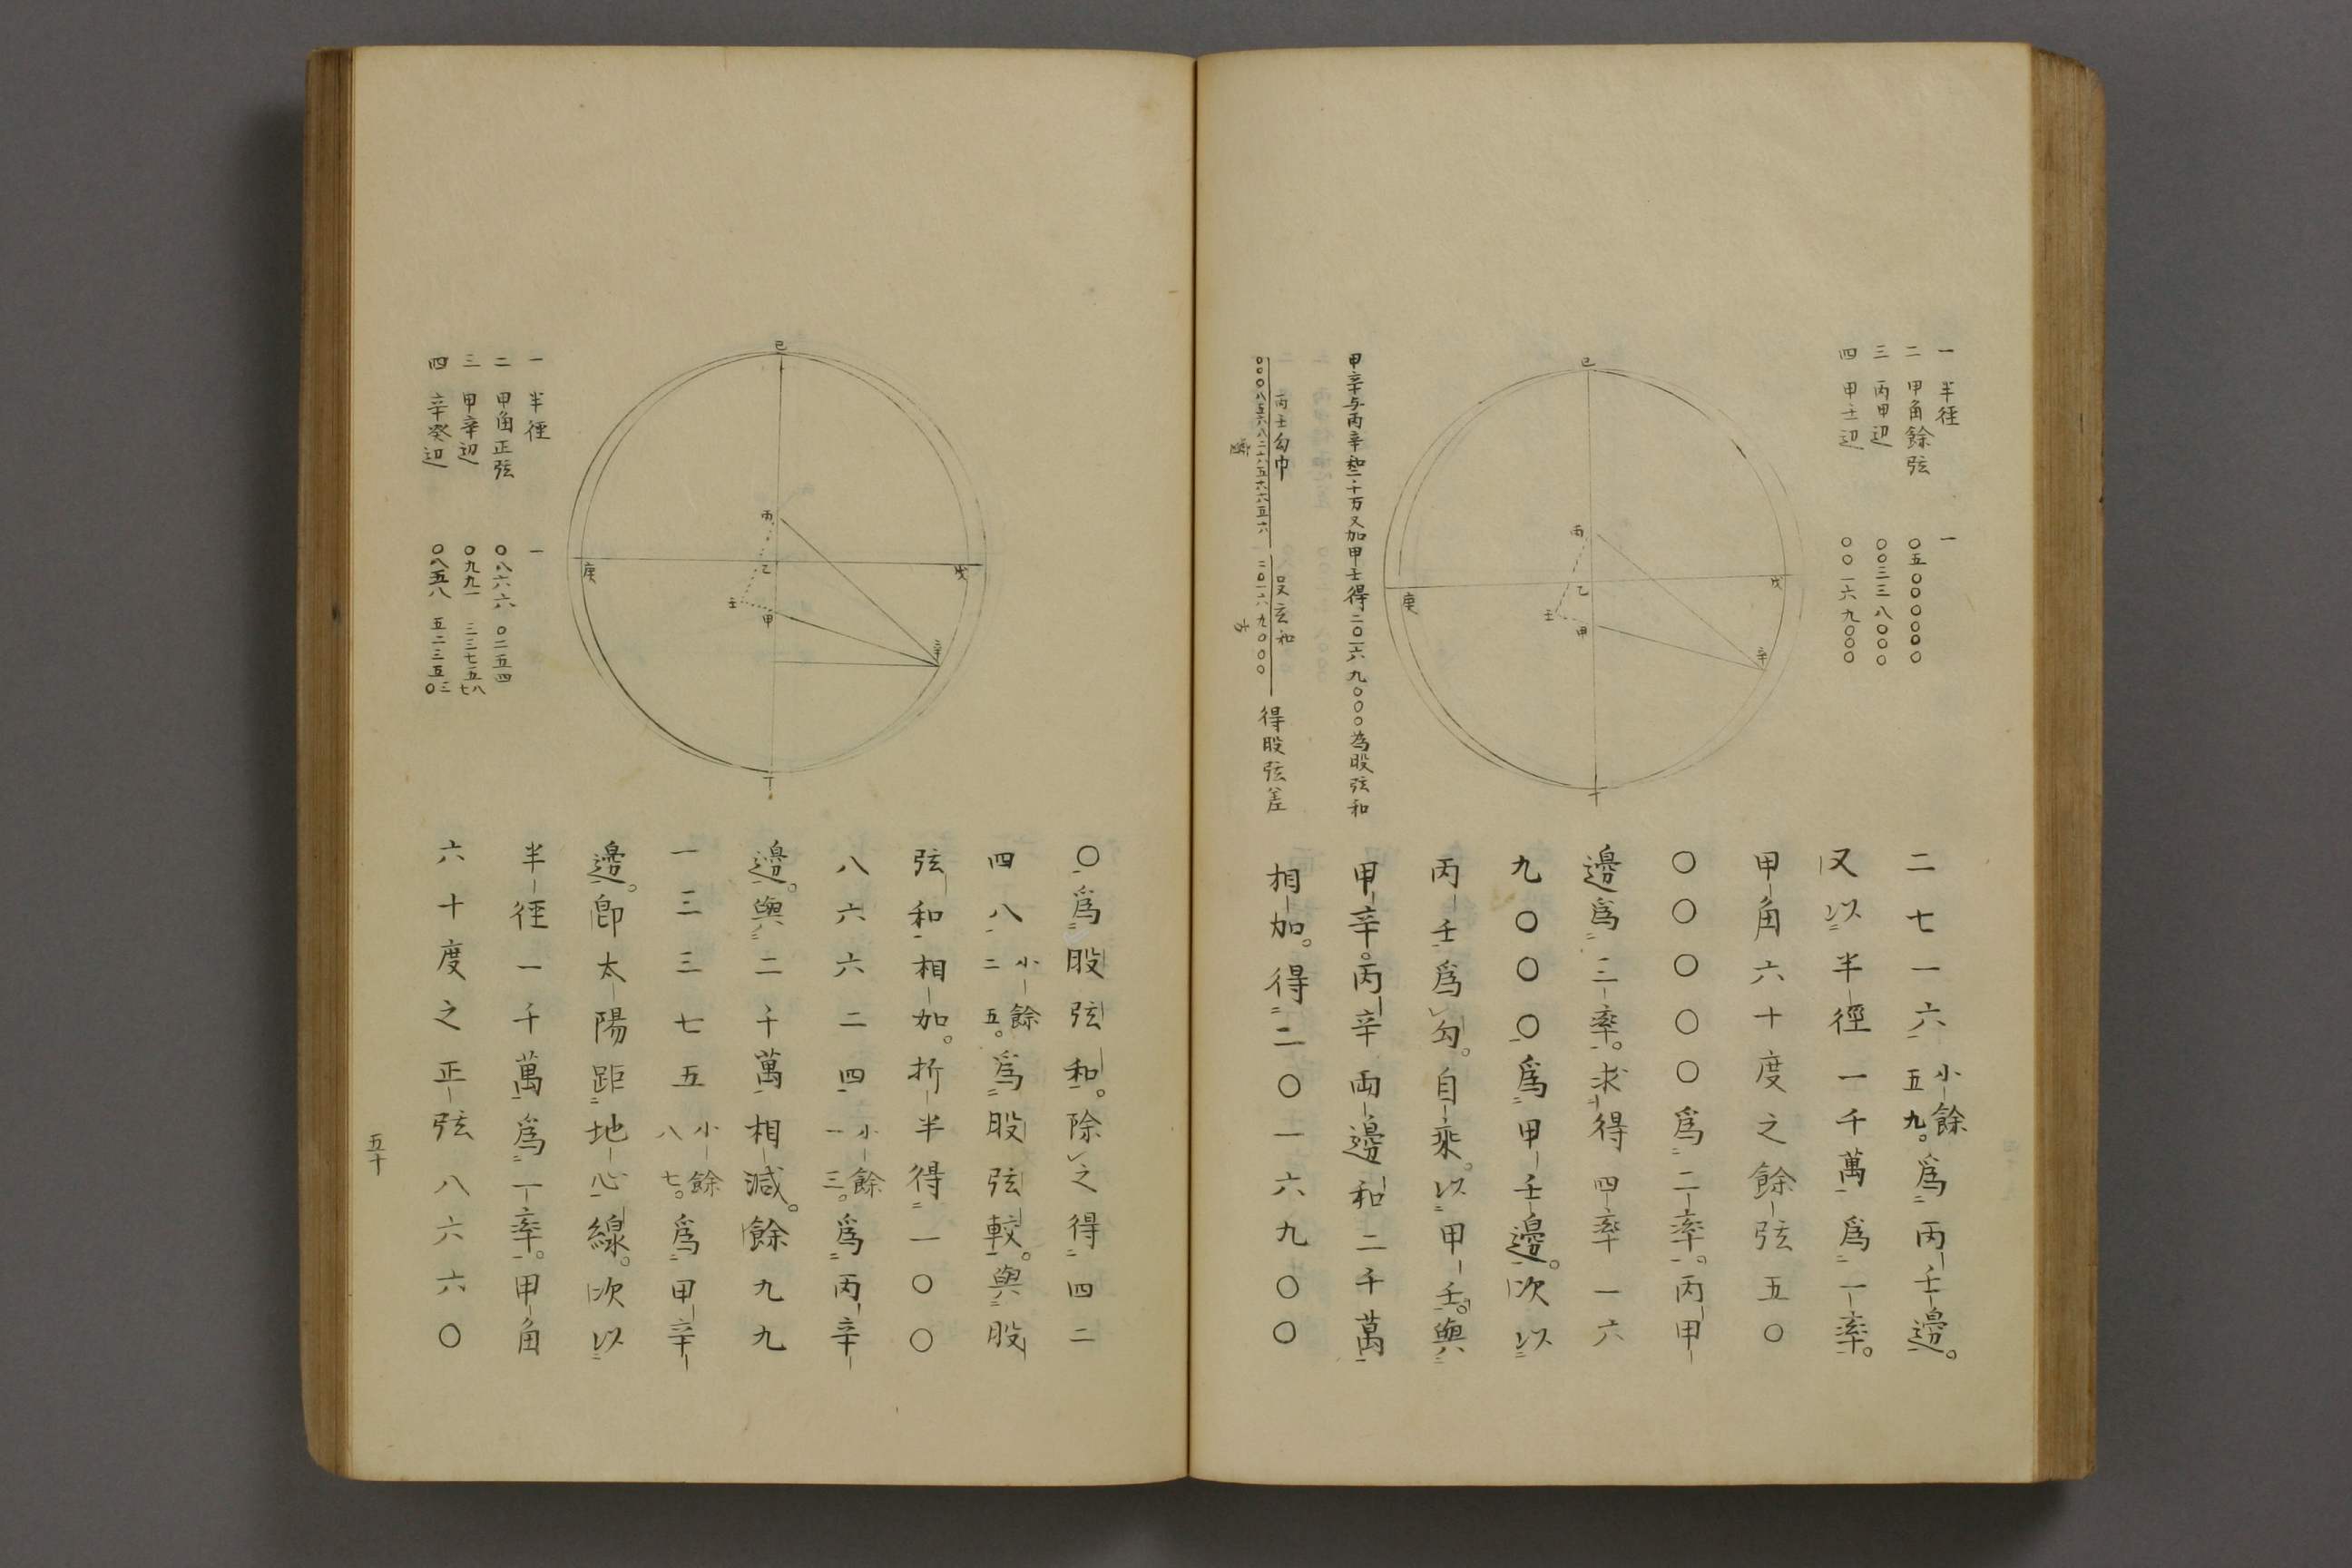 一 半径 一
二 甲角餘弦 〇五〇〇〇〇〇〇
三 丙甲辺 〇〇三三八〇〇〇
四 甲壬辺 〇〇一六九〇〇〇
巳
丙
乙
戊
庚
壬
甲
辛
丁
甲辛与丙辛和二千万又加甲壬得二〇一六九〇〇〇為股弦和
丙壬勾巾
〇〇〇八五六八二六五六六五六
二〇一六九〇〇〇
得股弦差
二七一六五九小餘。爲丙壬邊。
又以半徑一千萬爲一率。
甲角六十度之餘弦五〇
〇〇〇〇〇爲二率。丙甲
邊爲三率。求得四率一六
九〇〇〇爲甲壬邊。次以
丙壬爲勾。自乘。以甲壬。與
甲辛。丙辛兩邊和二千萬
相加。得二〇一六九〇〇
〇爲股弦和。除之得四二
四八小餘二五。爲股弦較。與股
弦和相加。折半得一〇〇
八六六二四小餘一三。爲丙辛
邊。與二千萬相減。餘九九
一三三七五小餘八七。爲甲辛
邊。卽太陽距地心線。次以
半徑一千萬爲一率。甲角
六十度之正弦八六六〇
一 半徑 一
二 甲角正弦 〇八六六〇二五四
三 甲辛辺 〇九九一三三七五八七
四 辛癸辺 〇八五八五二三五〇三
巳
丙
乙
戊
庚
壬
甲
辛
丁
五十